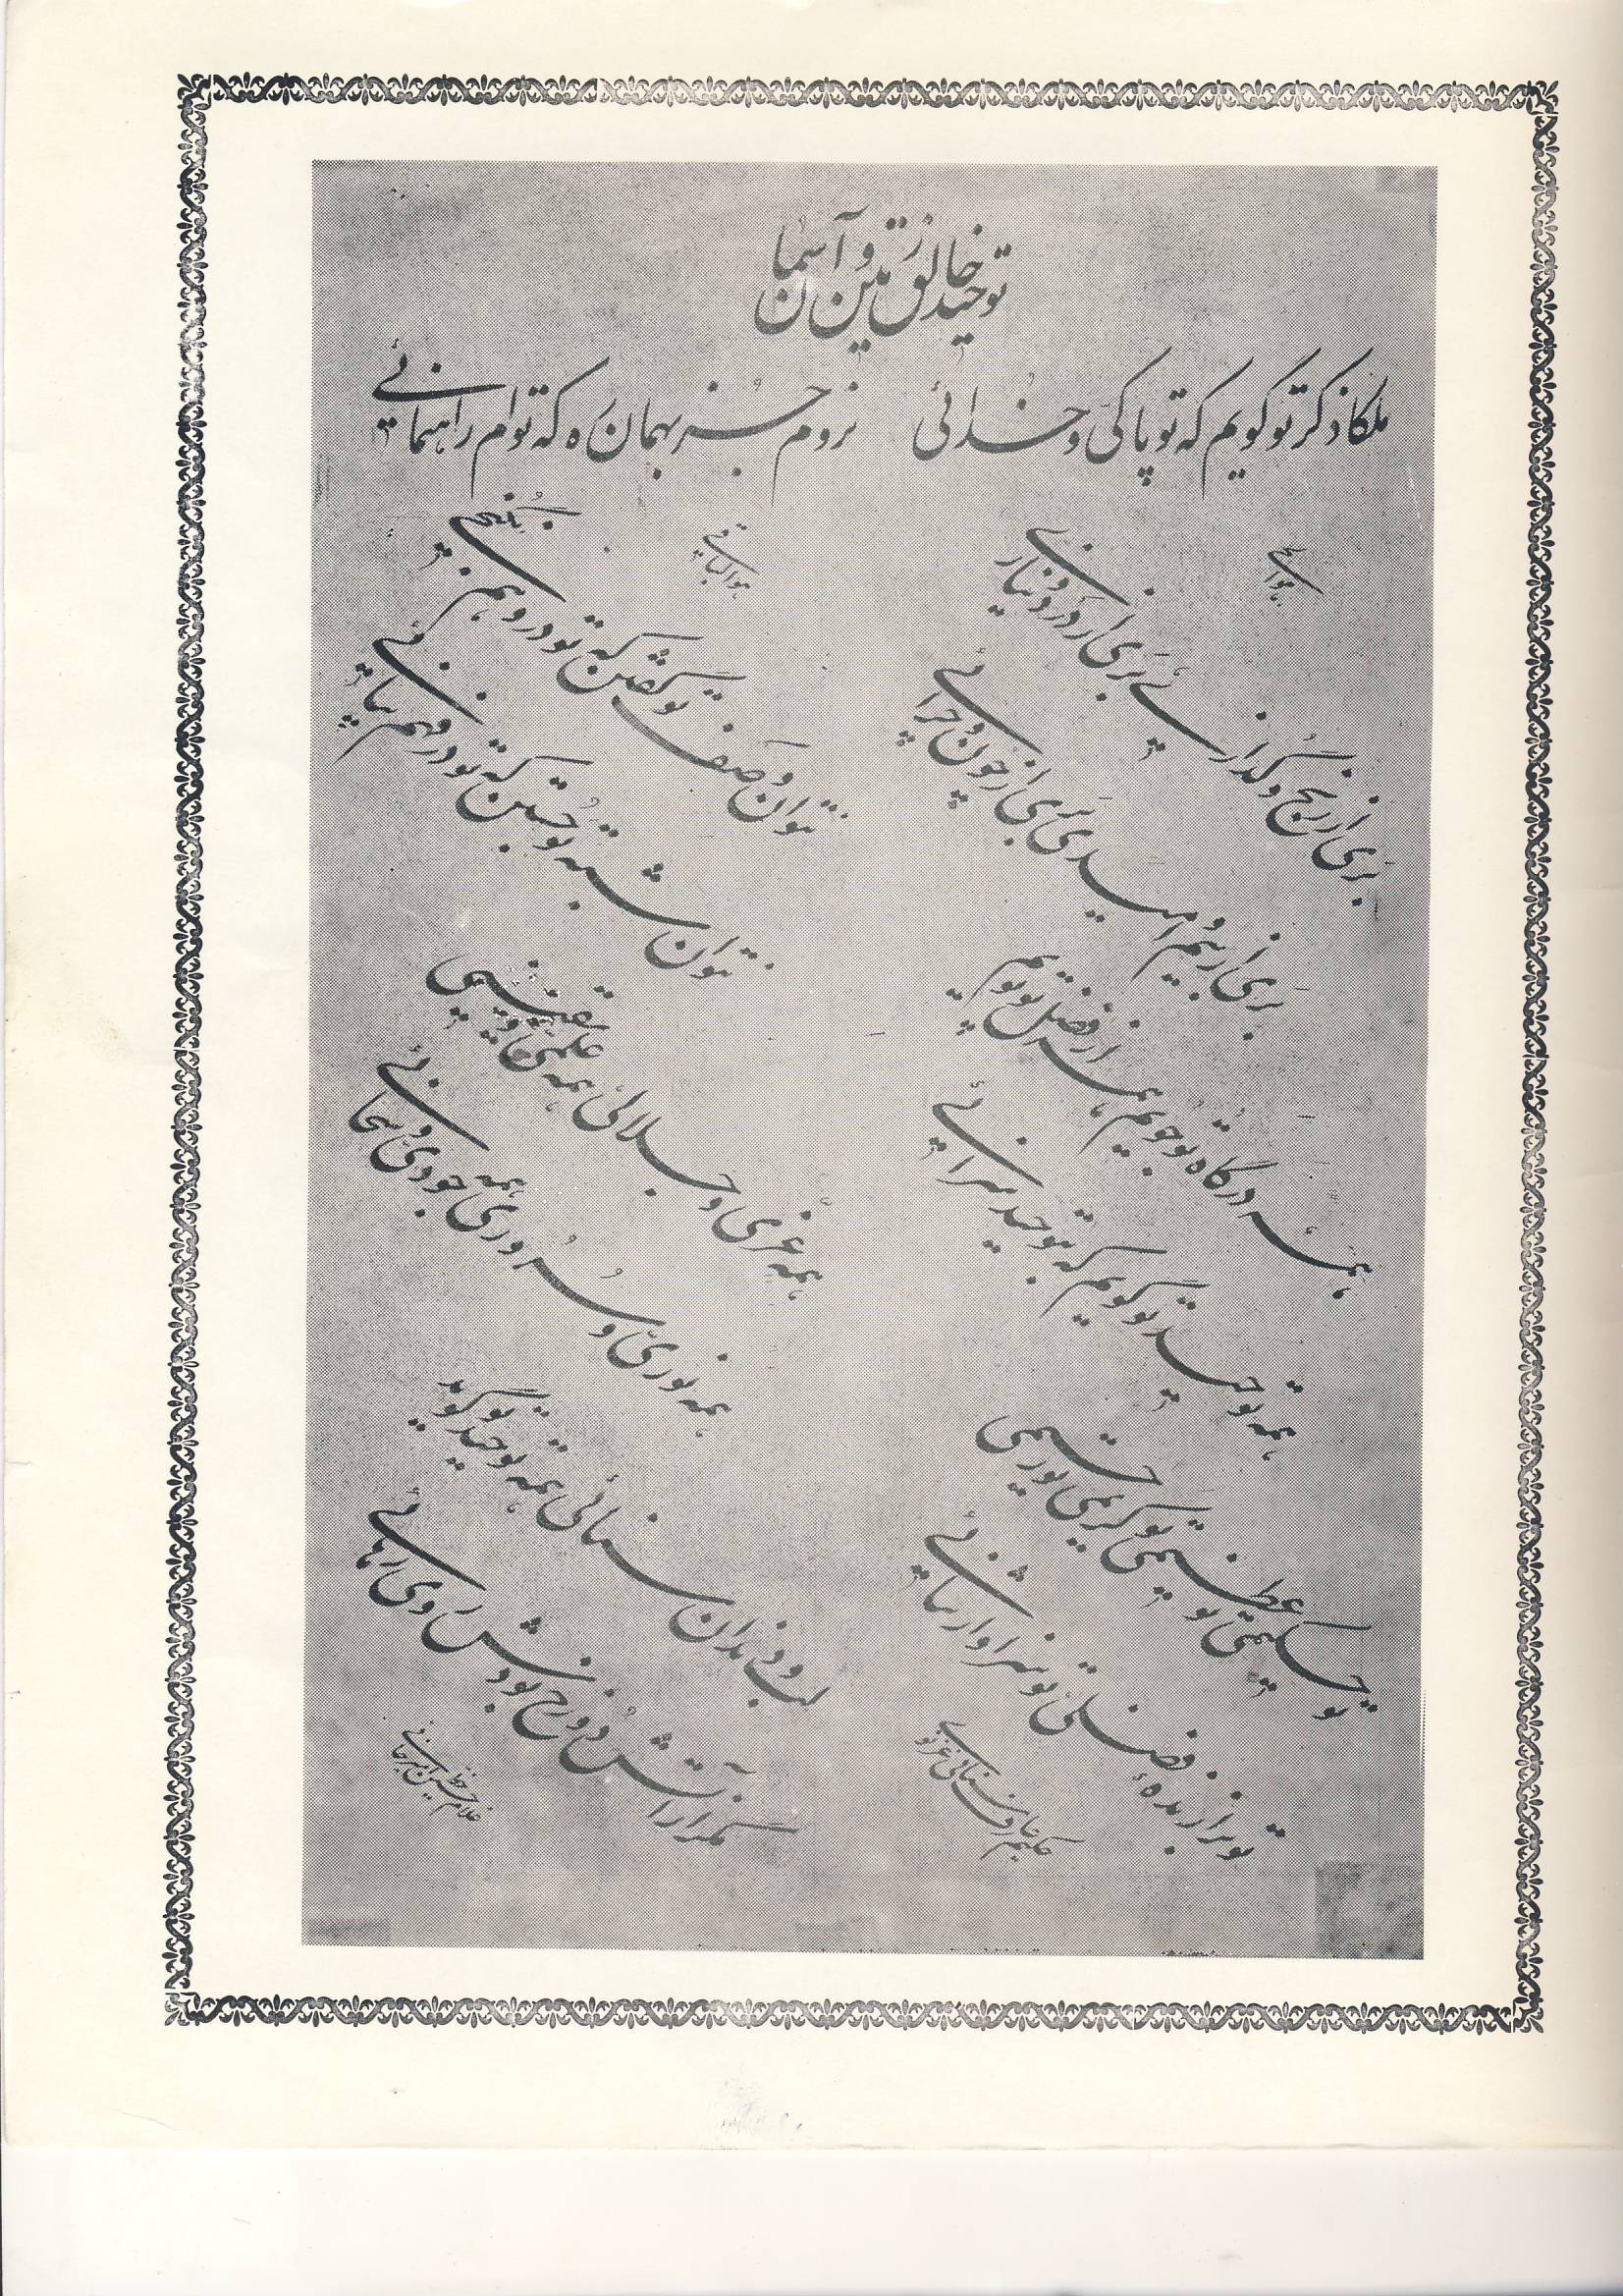 توحید خالق زمین و آسمان
ملکا ذکر تو گویم که تو پاکی و خدائی نروم جز بهمان ره که توام راهنمائی
هوالحی
هوالباقی
بری از رنج و گدازی بری از درد و نیازی
بری از بیم و امیدی بری از چون و چرائی
نتوان وصف تو گفتن که تو در وهم نگنجی
نتوان شبه تو جستن که تو در فهم نیائی
همه درگاه تو جویم همه از فضل تو پویم
همه توحید تو گویم که بتوحید سزائی
همه عزی و جلالی همه علمی و یقینی
همه نوری و سروری همه جودی و سخائی
تو حکیمی تو عظیمی تو کریمی تو رحیمی
تو برازندهٔ فضلی تو سزاوار ثنائی
لب و دندان سنائی همه توحید تو گوید
مگر از آتش دوزخ بودش روی رهائی
حکیم عارف سنائی غزنوی
غلامحسین امیرخانی